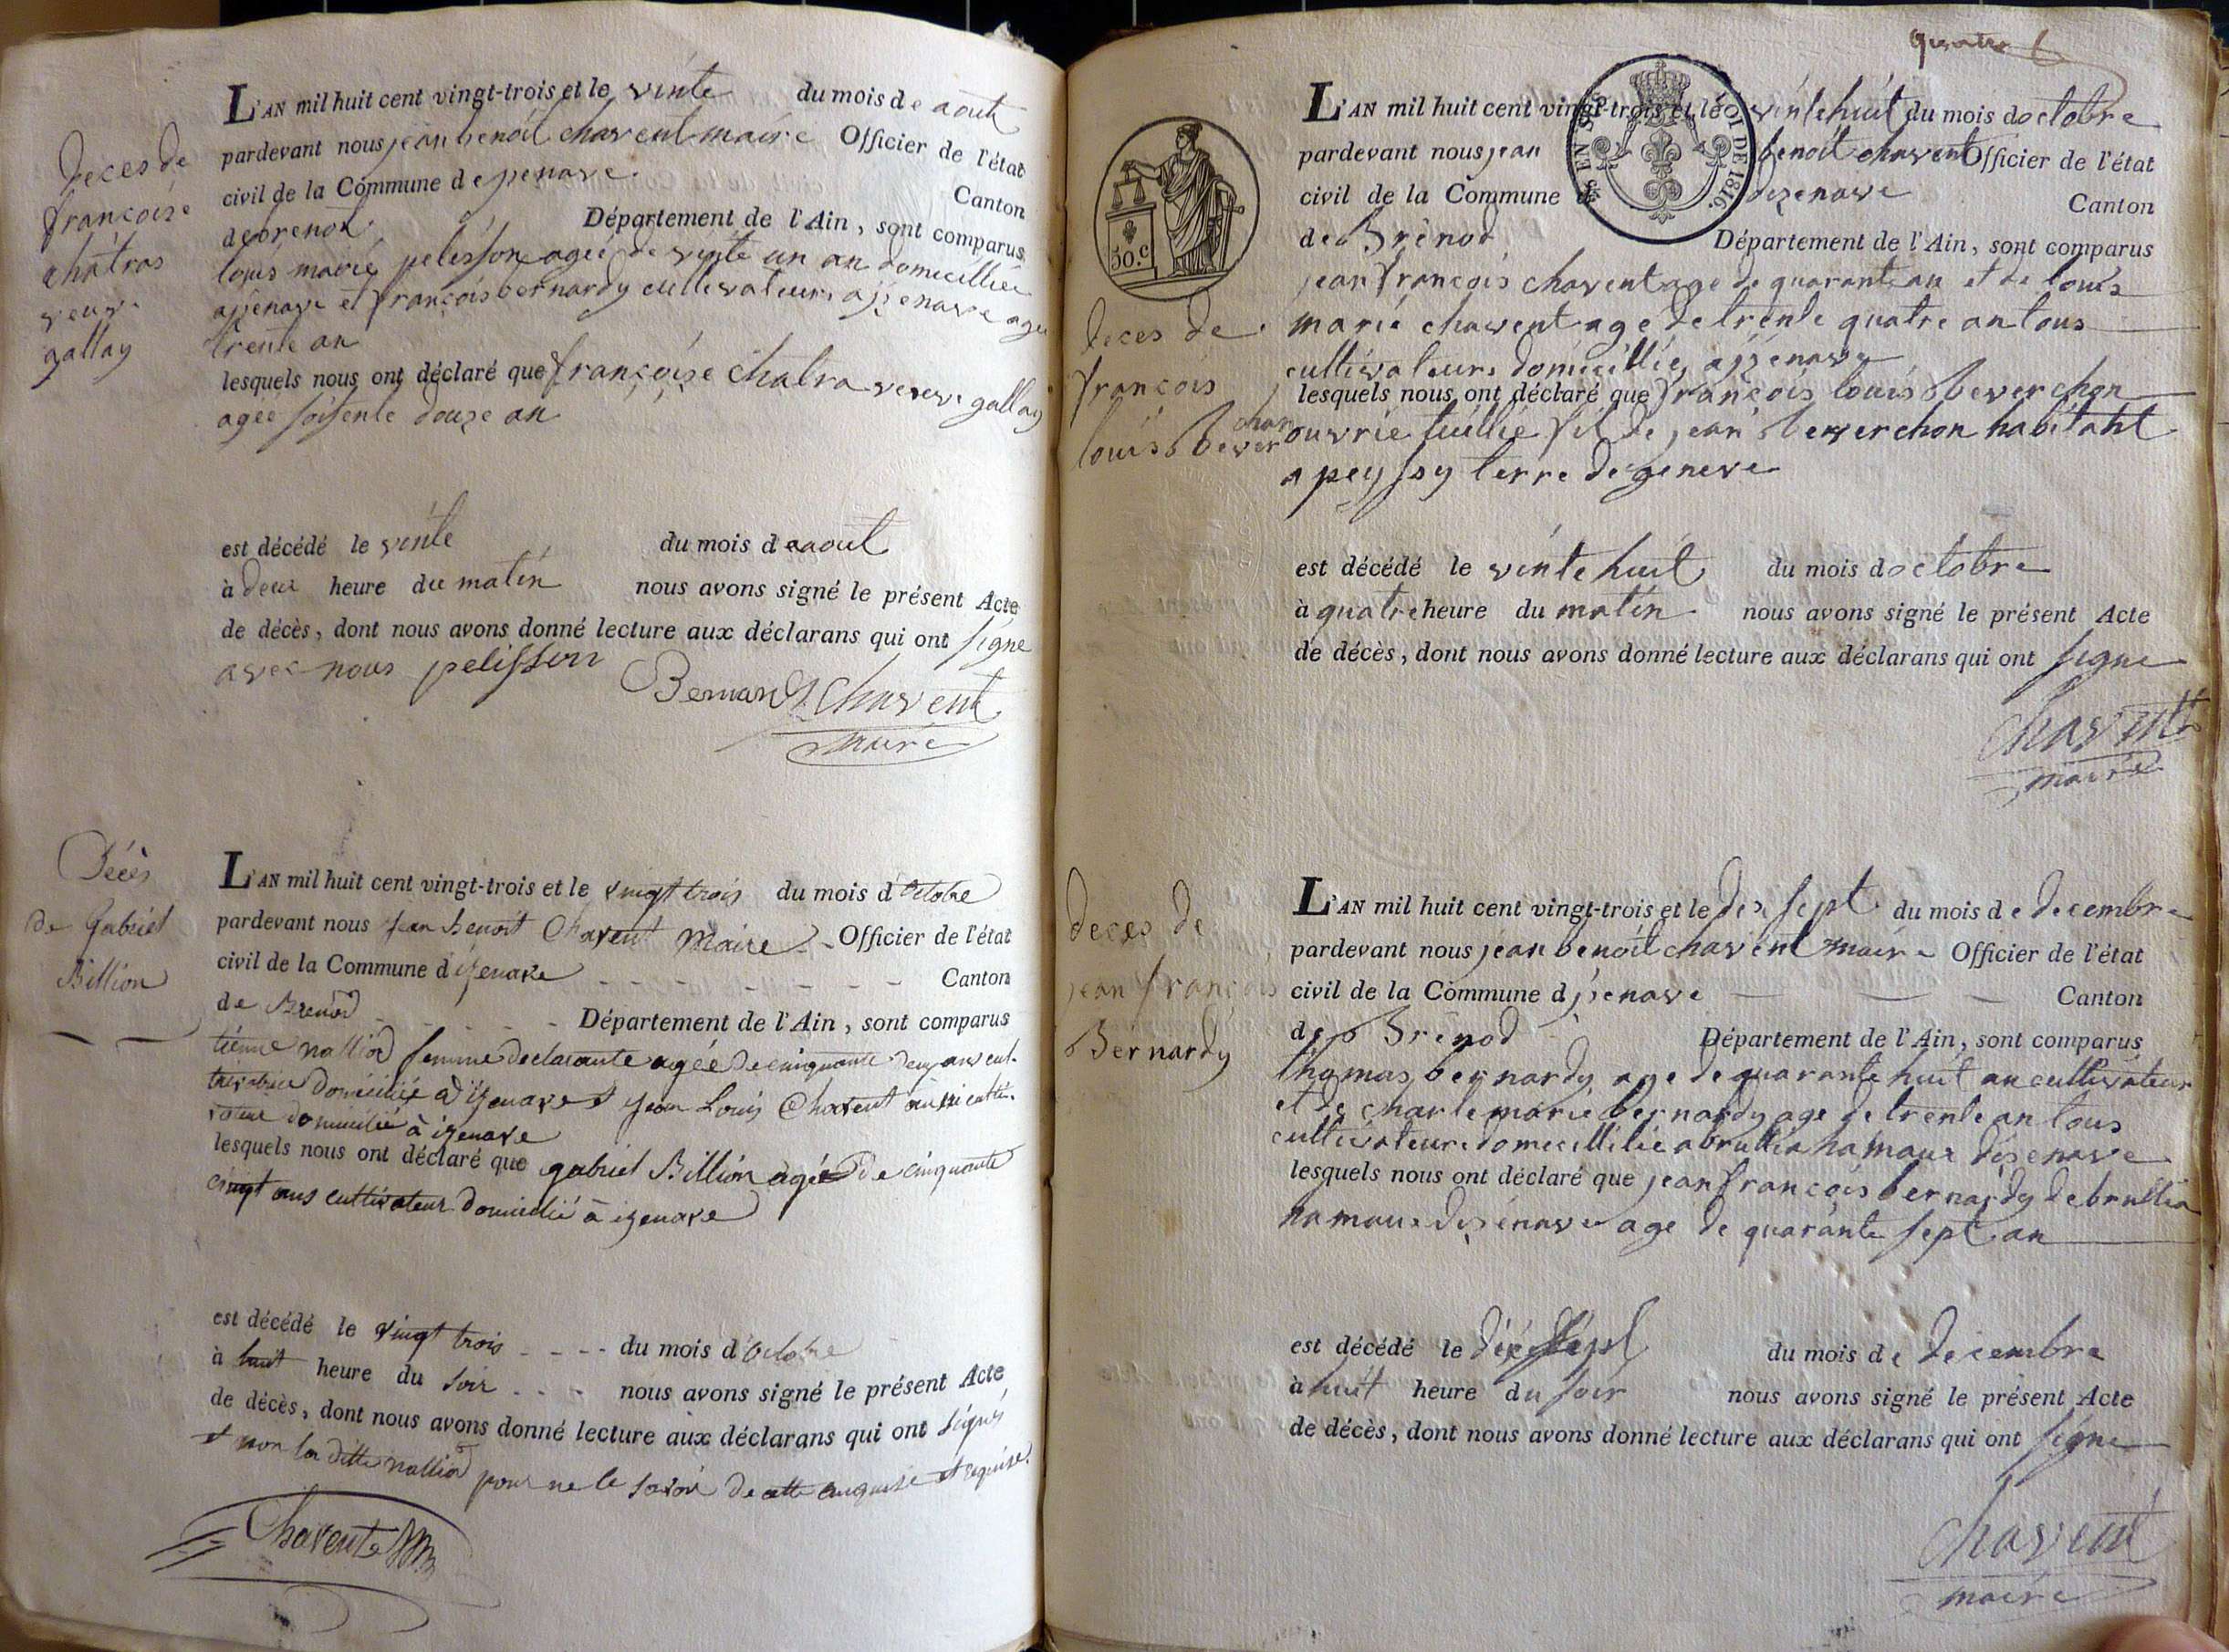 deces de
françoise
chatras
veuve
gallay
L'AN mil huit cent vingt-trois et le vinte du mois de aout
pardevant nous jean benoit chavent maire Officier de l'état
civil de la Commune d epenave Canton
de brenod Département de l'Ain, sont comparus
louis marie pelisson agée de vinte un an domicilliée
et françois bernardy cultivateurs
trente an
lesquels nous ont déclaré que françoise chatra veuve gallay
agée soisente douze an
est décédé le vinte du mois de aout
à deux heure du matin nous avons signé le présent Acte
de décès, dont nous avons donné lecture aux déclarans qui ont signe
avec nous pelisson Bernardy chavent
maire
Décès
de Gabriel
Billion
L'AN mil huit cent vingt-trois et le vingt trois du mois d'octobre
pardevant nous Jean Benoit Chavent Maire Officier de l'état
civil de la Commune d'izenave Canton
de Brenod Département de l'Ain, sont comparus
femme declarante agée de cinquante deux ans cul-
tivatrice domiciliée à izenave et jean Louis Chavent aussi culti-
vateur domicilié à izenave
lesquels nous ont déclaré que gabriel Billion agé de cinquante
cinq ans cultivateur domicilié à izenave
est décédé le vingt trois du mois d'octobre
à huit heure du soir nous avons signé le présent Acte
de décès, dont nous avons donné lecture aux déclarans qui ont signés
et non la ditte pour ne le savoir de cette enquise et requise.
Chavent
quatre
30.c
LOI DE 1816.
EN SUS
L'AN mil huit cent vingt-trois et le vinte huit du mois d octobre
pardevant nous jean benoit chavent Officier de l'état
civil de la Commune dezenave Canton
de Brénod Département de l'Ain, sont comparus
jean françois chavent age de quarante an et de louis
marie chavent age de trente quatre an tous
cultivateurs domicilliés
deces de
françois
louis bever
chon
lesquels nous ont déclaré que françois louis beverchon
ouvrié fil de jean beverchon habitant
a peyssy terre de geneve
est décédé le vinte huit du mois d octobre
à quatre heure du matin nous avons signé le présent Acte
de décès, dont nous avons donné lecture aux déclarans qui ont signe
chavent
maire
deces de
jean françois
Bernardy
L'AN mil huit cent vingt-trois et le dix sept du mois de decembre
pardevant nous jean benoit chavent maire Officier de l'état
civil de la Commune d izenave Canton
de Brénod Département de l'Ain, sont comparus
thomas bernardy age de quarante huit an cultivateur
et de charle marie bernardy age de trente an tous
cultivateurs domicillilié a brullia hamaux dizenave
lesquels nous ont déclaré que jean françois bernardy de brullia
hamaux dizenave age de quarante sept an
est décédé le dix sept du mois de decembre
à huit heure du soir nous avons signé le présent Acte
de décès, dont nous avons donné lecture aux déclarans qui ont signe
chavent
maire